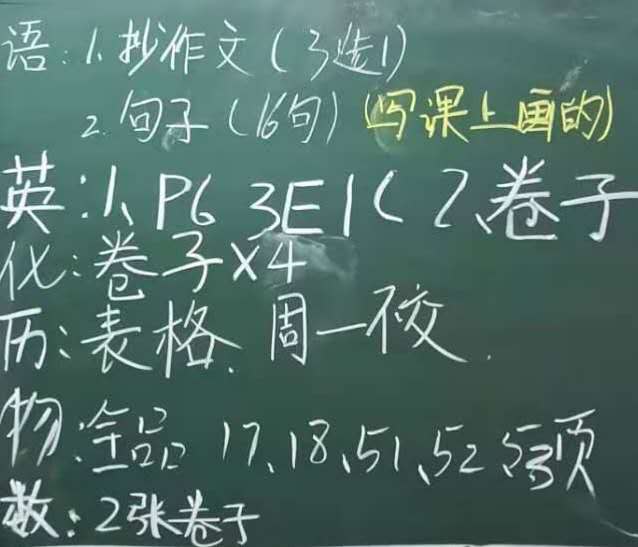 语:1.抄作文(3选1)
2.句子(16句)(写课上画的)
英:1、P6 3E1C 2、卷子
化:卷子×4
历:表格.周一交.
物:全品 17、18、51、52、53页
数:2张卷子